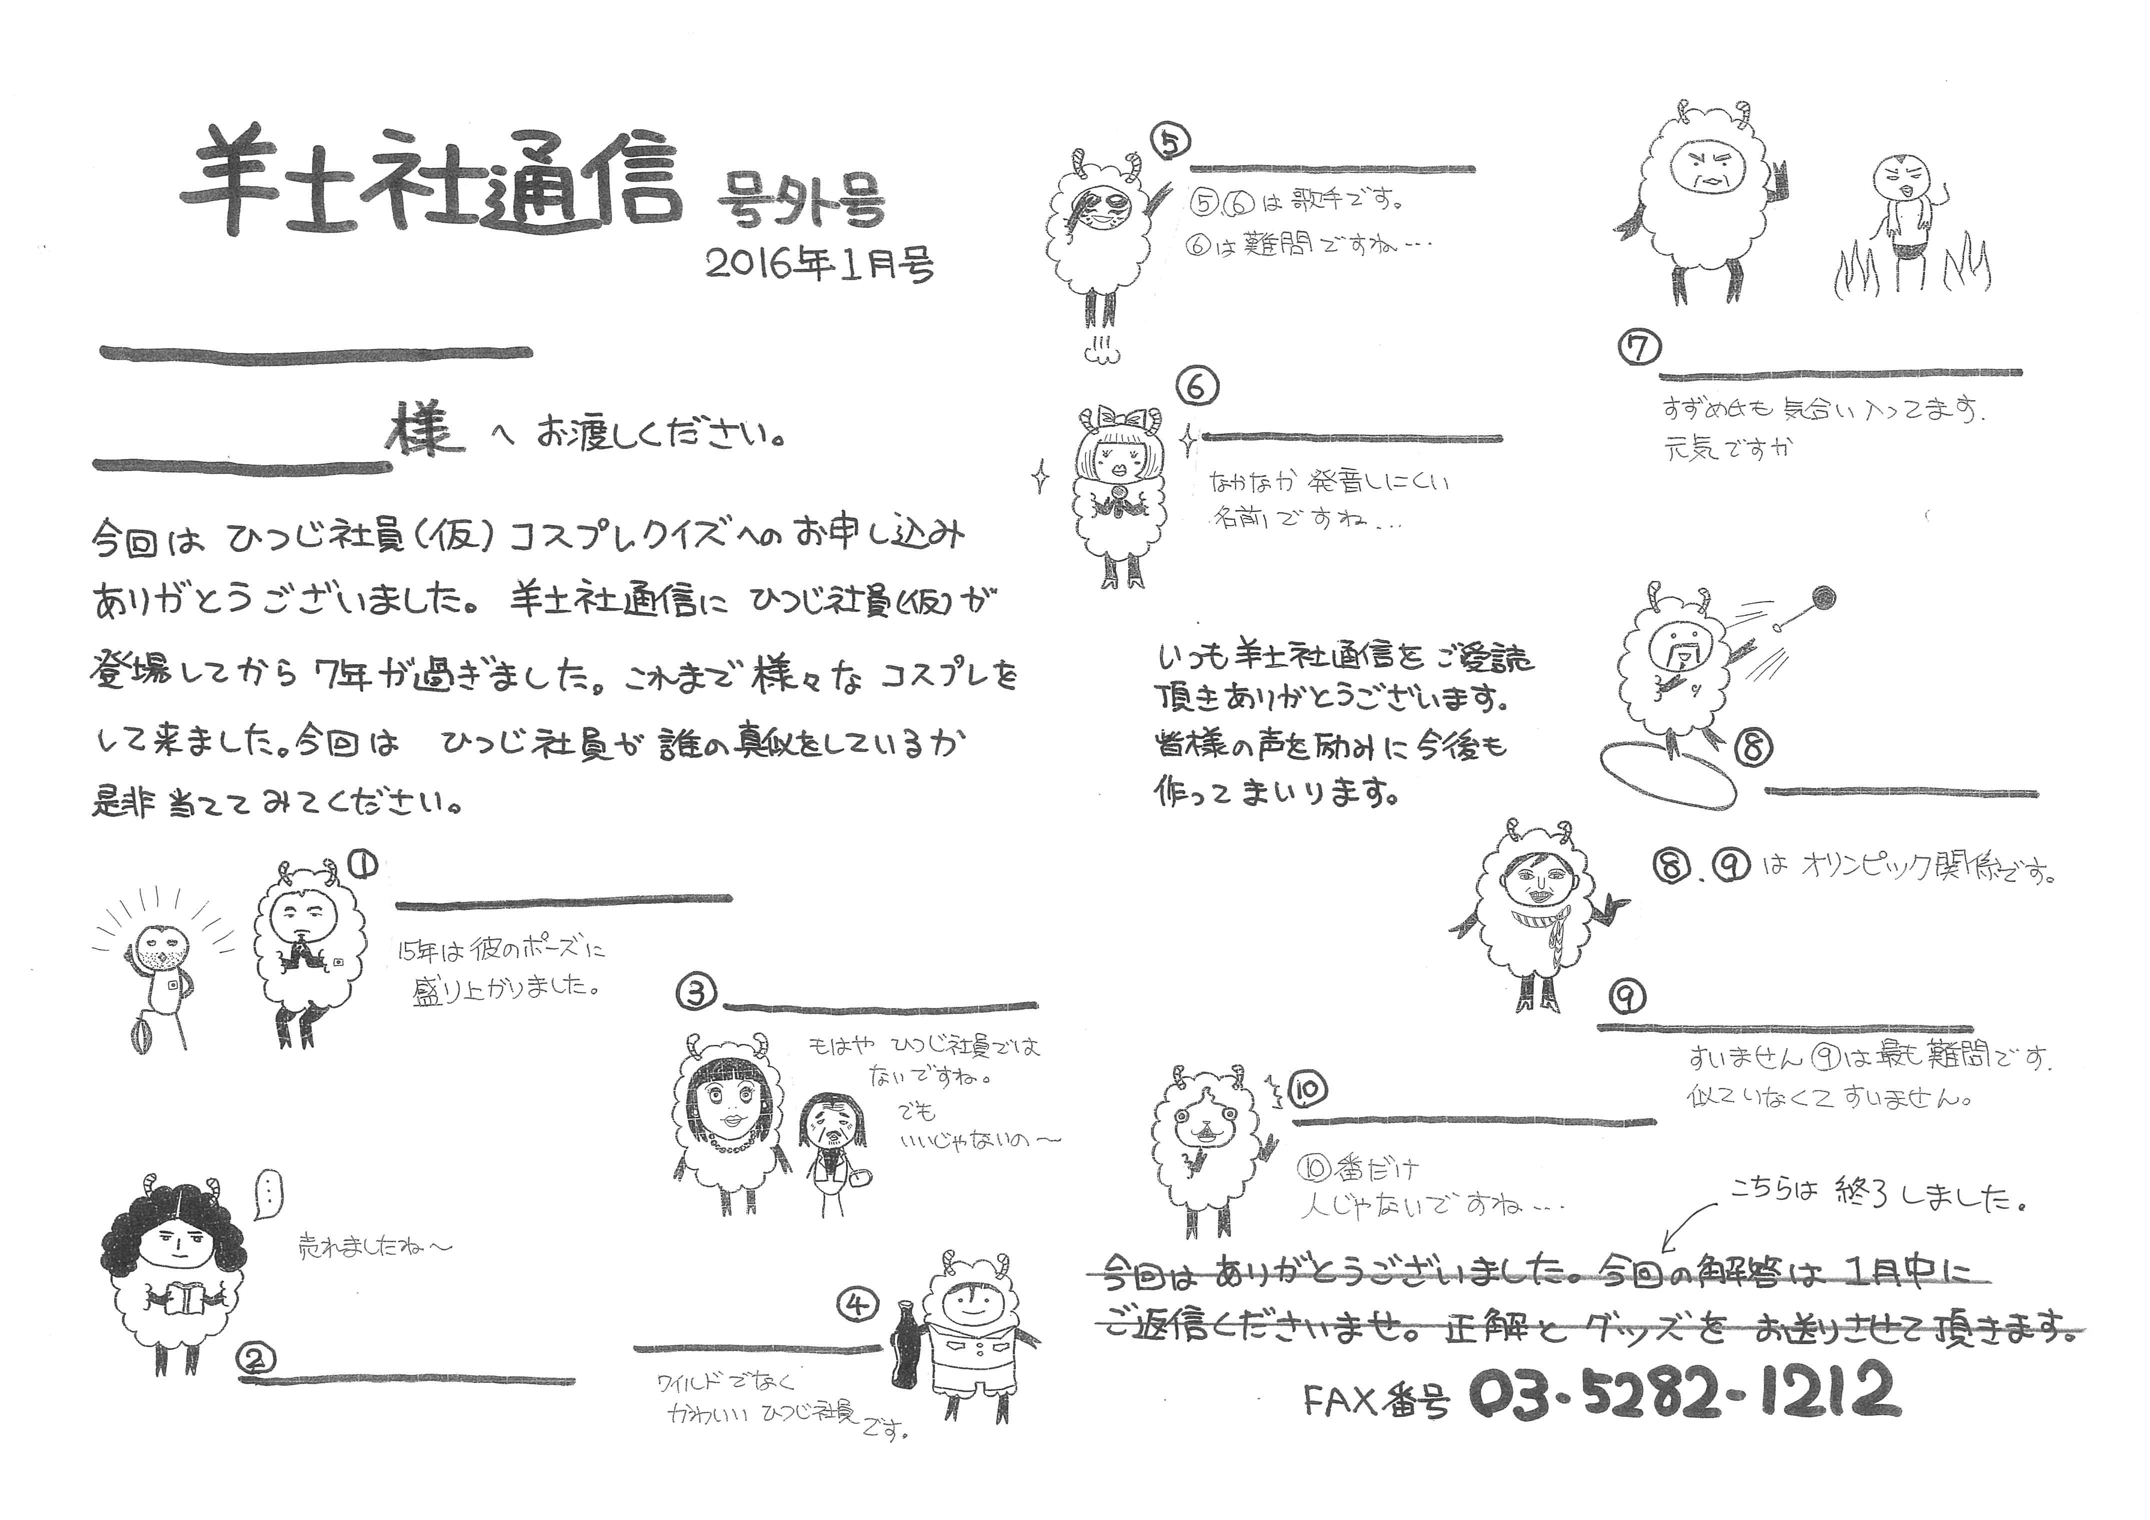 羊土社通信 号外号
2016年1月号
様 へ お渡しください。
今回は ひつじ社員(仮) コスプレクイズへの お申し込み
ありがとうございました。 羊土社通信に ひつじ社員(仮)が
登場してから 7年が過ぎました。これまで 様々な コスプレを
して来ました。今回は ひつじ社員が 誰の真似をしているか
是非 当ててみてください。
①
15年は 彼のポーズに
盛り上がりました。
②
売れましたね〜
③
もはや ひつじ社員では
ないですね。
でも
いいじゃないの〜
④
ワイルドでなく
かわいい ひつじ社員
です。
⑤
⑤⑥は 歌手です。
⑥は 難問ですね…
⑥
なかなか 発音しにくい
名前ですね…
いつも 羊土社通信を ご愛読
頂きありがとうございます。
皆様の声を励みに今後も
作ってまいります。
⑦
すずめ氏も 気合い入ってます.
元気ですか
⑧
⑧.⑨は オリンピック関係です。
⑨
すいません⑨は最も難問です.
似ていなくてすいません。
⑩
⑩番だけ
人じゃないですね…
こちらは 終了しました.
今回は ありがとうございました。今回の解答は 1月中に
ご返信くださいませ。正解と グッズを お送りさせて頂きます。
FAX番号 03-5282-1212